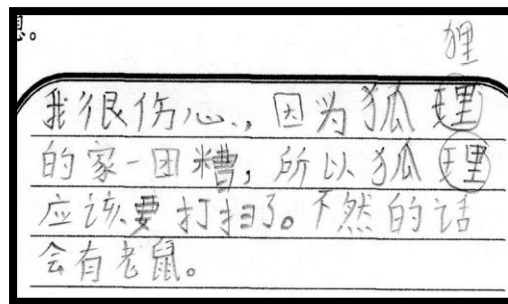 息。
狸
我很伤心，因为狐理
的家一团糟，所以狐理
应该要打扫了。不然的话
会有老鼠。